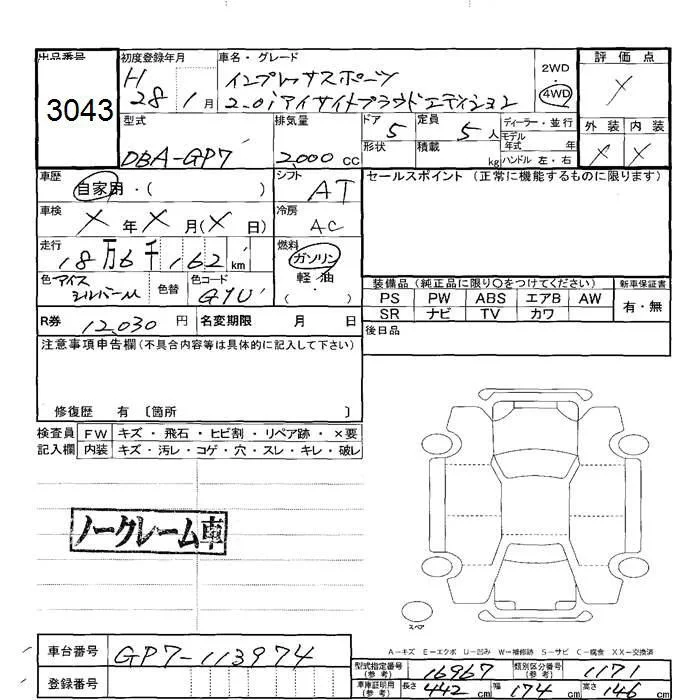 出品番号 初度登録年月 車名・グレード 2WD 評価点
3043 H28 1月 インプレッサスポーツ 4WD ×
2.0iアイサイトプラウドエディション
型式 排気量 ドア 定員 ディーラー・並行 外装 内装
DBA-GP7 2,000cc 5 5人 モデル年式 年 × ×
形状 積載 kg ハンドル 左・右
車歴 自家用・( ) シフト AT セールスポイント (正常に機能するものに限ります)
車検 ×年×月(×日) 冷房 AC
走行 18万6千162km 燃料 ガソリン
軽油
・( )
色 アイスシルバーM 色替 色コード G1U 装備品(純正品に限り○をつけてください) 新車保証書
PS PW ABS エアB AW 有・無
SR ナビ TV カワ
R券 12,030円 名変期限 月 日 後日品
注意事項申告欄(不具合内容等は具体的に記入して下さい)
修復歴 有〔箇所 〕
検査員 FW キズ・飛石・ヒビ割・リペア跡・×要
記入欄 内装 キズ・汚レ・コゲ・穴・スレ・キレ・破レ
ノークレーム車
スペア
A-キズ E-エクボ U-凹み W-補修跡 S-サビ C-腐食 XX-交換済
車台番号 GP7-113974 型式指定番号(参考) 16967 類別区分番号(参考) 1171
登録番号 車庫証明用(参考) 長さ 442cm 幅 174cm 高さ 146cm